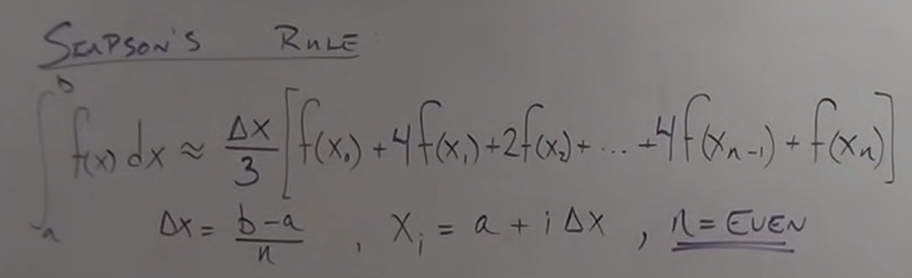 SIMPSON'S RULE
∫_a^b f(x) dx ≈ Δx/3 [f(x₀) + 4f(x₁) + 2f(x₂) + ... + 4f(xₙ₋₁) + f(xₙ)]
Δx = b-a/n , xᵢ = a + i Δx , n = EVEN